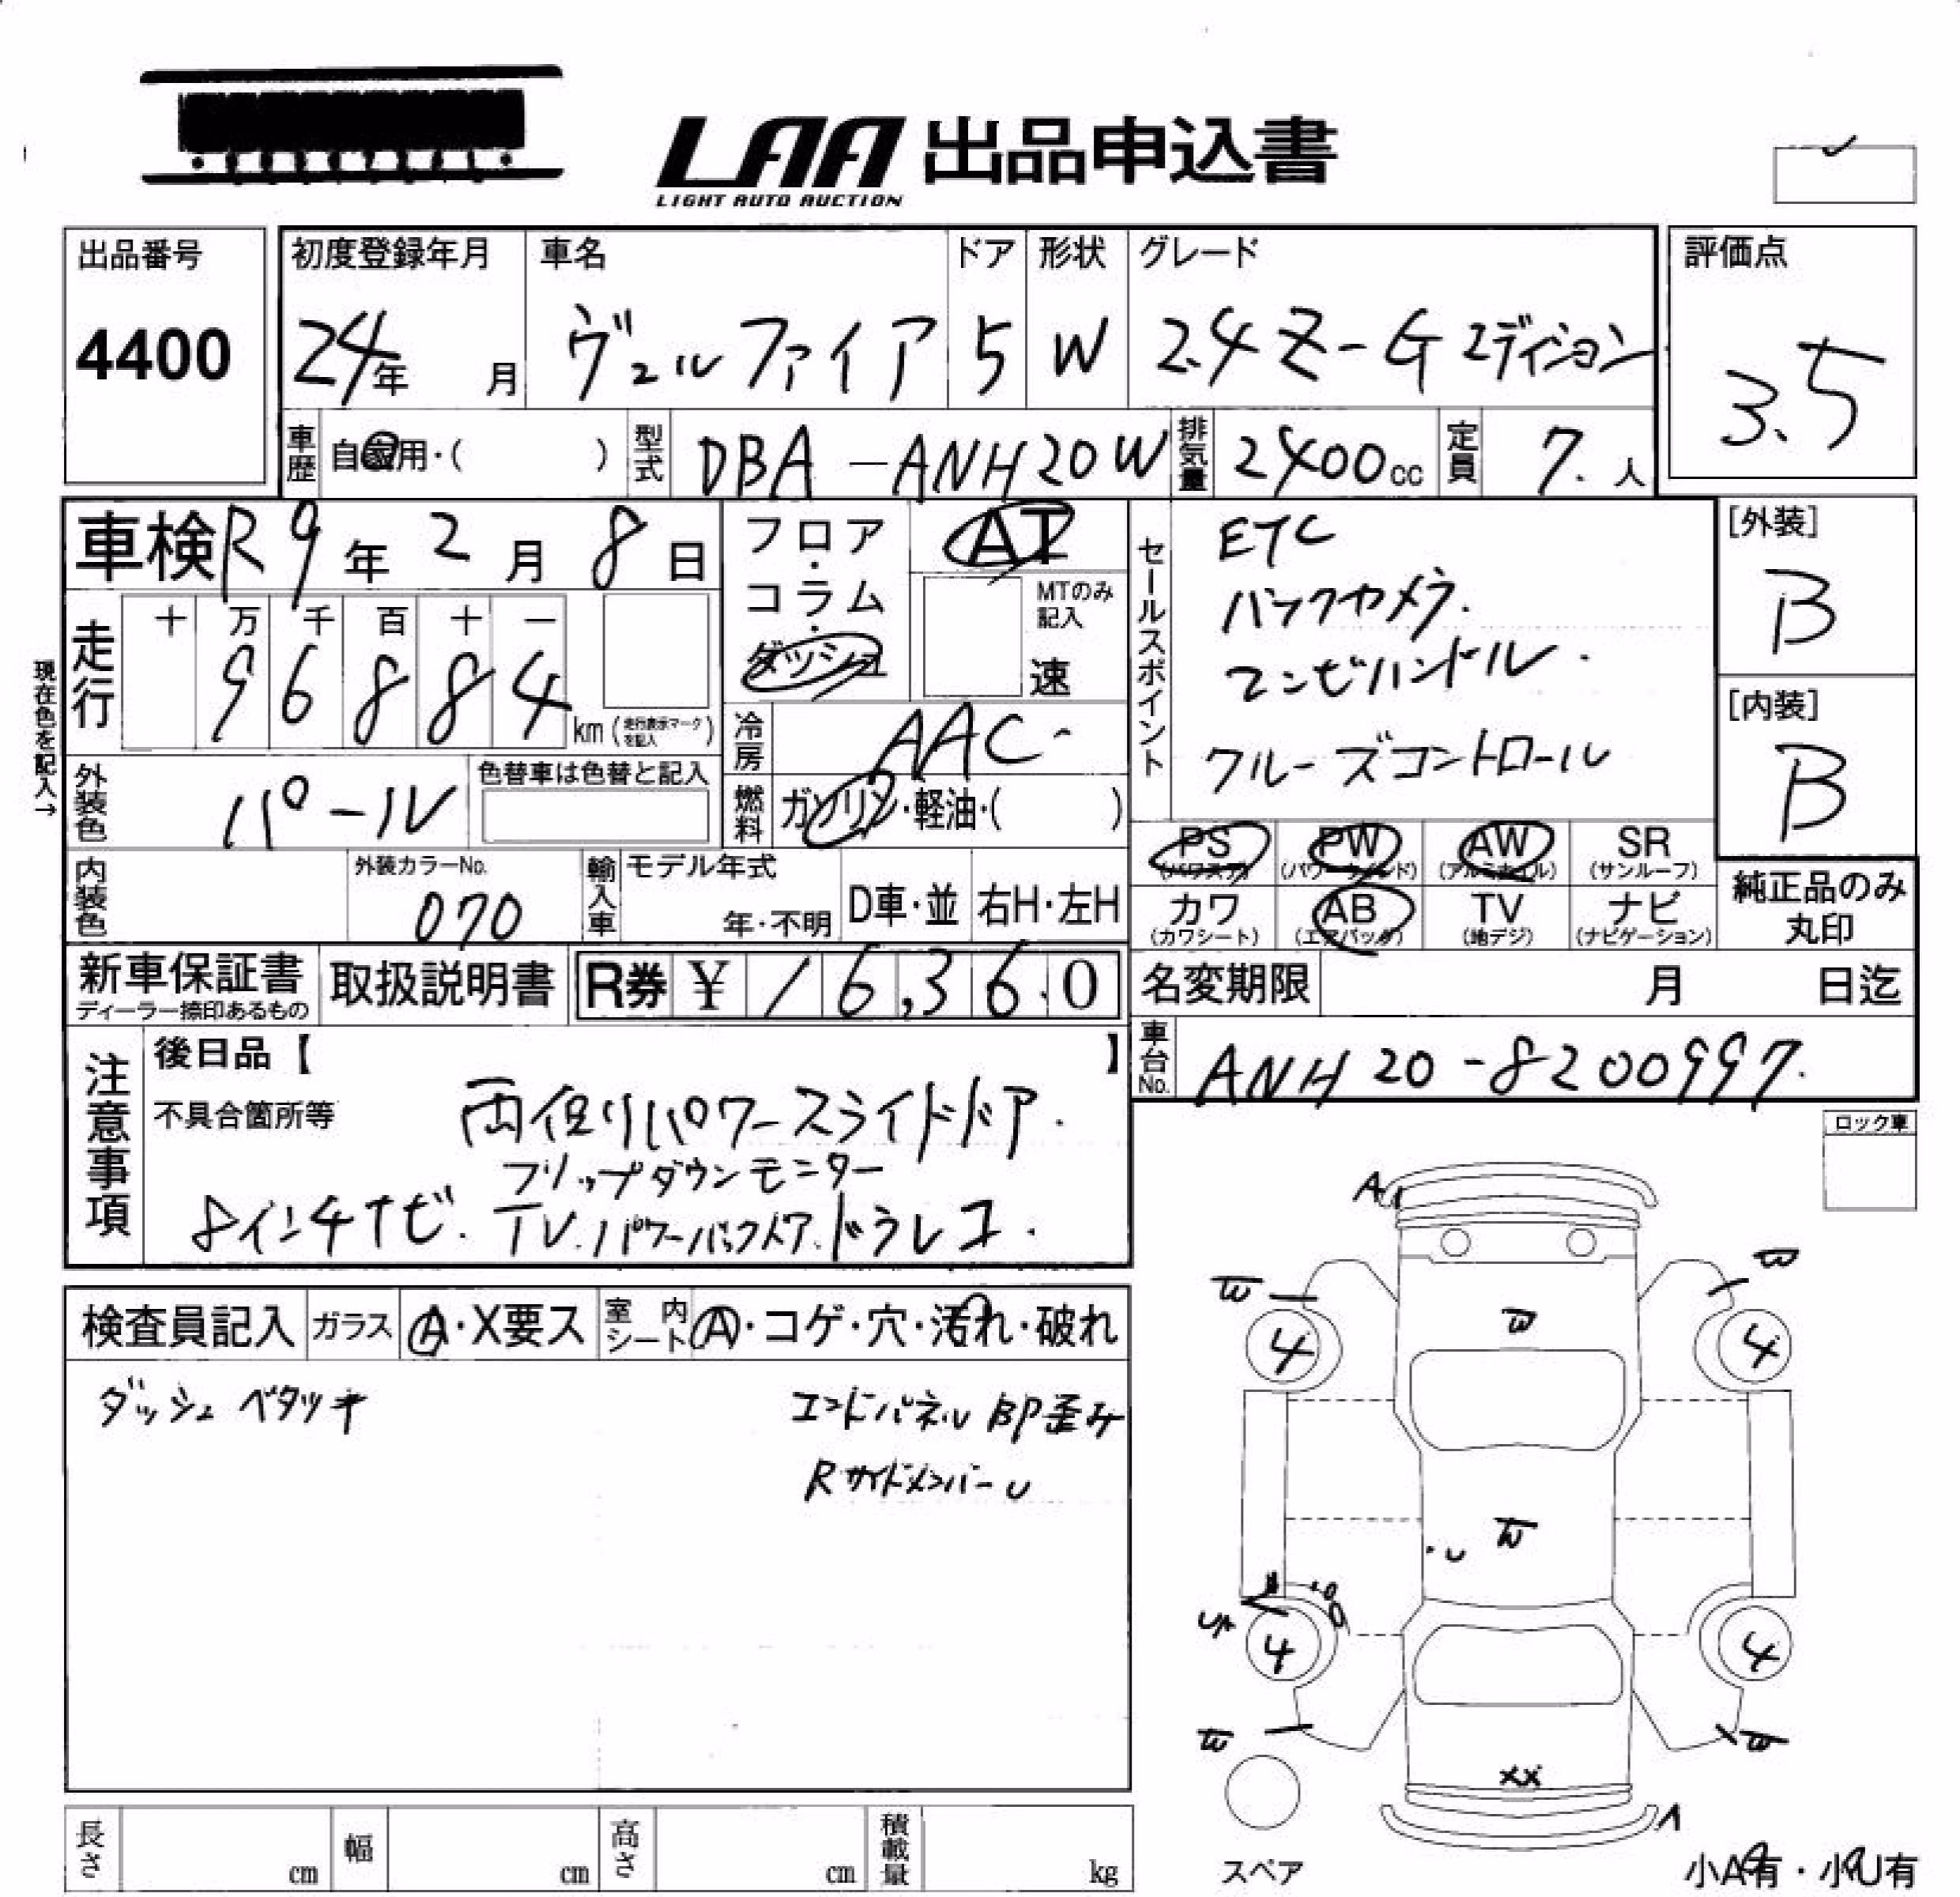 LAA 出品申込書
LIGHT AUTO AUCTION
出品番号
4400
初度登録年月
24年 月
車名
ヴェルファイア
ドア
5
形状
W
グレード
2.4 Z-Gエディション
評価点
3.5
車歴 自家用・( )
型式 DBA-ANH20W
排気量 2400cc
定員 7.人
車検 R9年 2月 8日
現在色を記入→
走行 十 万 千 百 十 一
96884 km (走行表示マークを記入)
フロア・コラム・ダッシュ
AT
MTのみ記入
速
冷房 AAC-
燃料 ガソリン・軽油・( )
セールスポイント
ETC
バックカメラ.
コンビハンドル.
クルーズコントロール
[外装]
B
[内装]
B
外装色 パール
色替車は色替と記入
内装色
外装カラーNo.
070
輸入車 モデル年式
年・不明
D車・並
右H・左H
PS (パワステ) PW (パワーウインド) AW (アルミホイル) SR (サンルーフ)
カワ (カワシート) AB (エアバッグ) TV (地デジ) ナビ (ナビゲーション)
純正品のみ丸印
新車保証書
ディーラー捺印あるもの
取扱説明書
R券 ¥ 16,360
名変期限 月 日迄
車台No. ANH20-8200997.
注意事項
後日品【 】
不具合箇所等
両側パワースライドドア.
フリップダウンモニター
8インチナビ. TV. パワーバックドア. ドラレコ.
ロック車
検査員記入
ガラス A・X要ス
室内シート A・コゲ・穴・汚れ・破れ
ダッシュ ベタツキ
エンドパネル 部P歪み
RサイドメンバーU
A
W W
W
4 4
W
U
4 4
W W
XX
スペア
小A有・小U有
長さ cm
幅 cm
高さ cm
積載量 kg